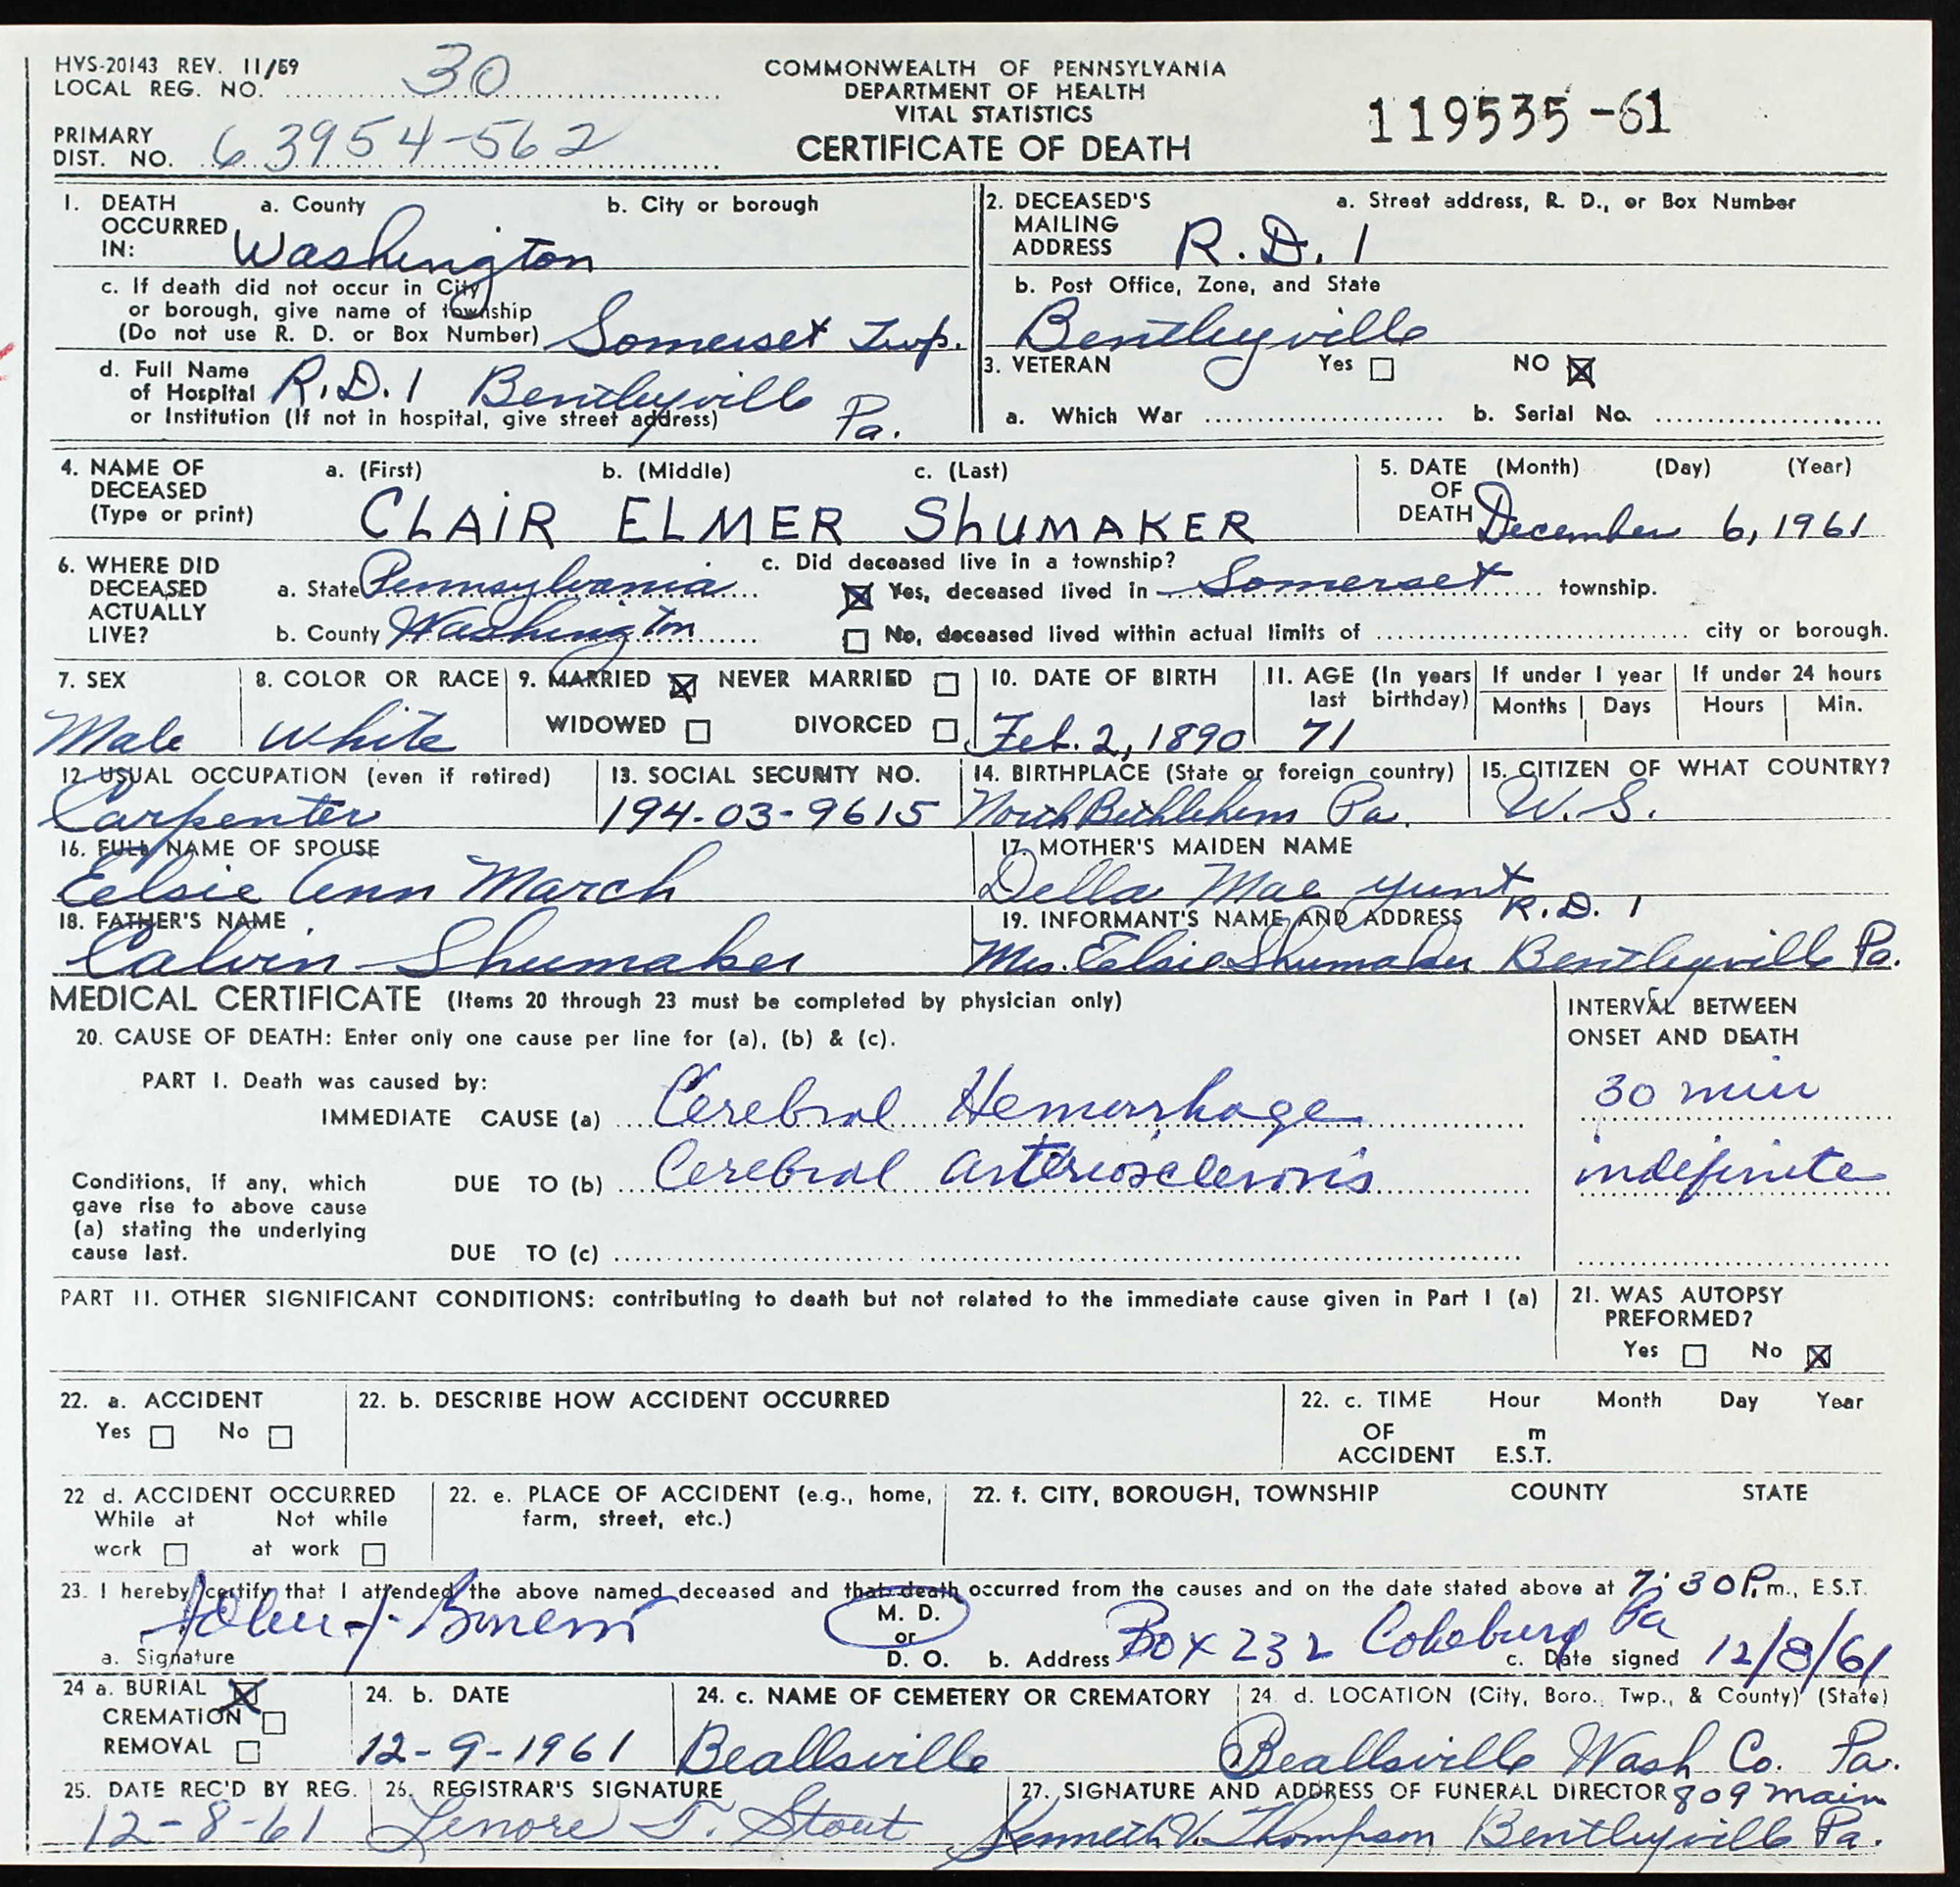 HVS-20143 REV. 11/59
LOCAL REG. NO. 30
PRIMARY DIST. NO. 63954-562
COMMONWEALTH OF PENNSYLVANIA
DEPARTMENT OF HEALTH
VITAL STATISTICS
CERTIFICATE OF DEATH
119535-61
1. DEATH OCCURRED IN: a. County Washington b. City or borough
c. If death did not occur in City or borough, give name of township (Do not use R. D. or Box Number) Somerset Twp.
d. Full Name of Hospital or Institution (If not in hospital, give street address) R.D. 1 Bentleyville Pa.
2. DECEASED'S MAILING ADDRESS a. Street address, R. D., or Box Number R.D. 1
b. Post Office, Zone, and State Bentleyville
3. VETERAN Yes ☐ NO ☒
a. Which War b. Serial No.
4. NAME OF DECEASED (Type or print) a. (First) b. (Middle) c. (Last)
CLAIR ELMER ShUMAKER
5. DATE OF DEATH (Month) (Day) (Year) December 6, 1961
6. WHERE DID DECEASED ACTUALLY LIVE? a. State Pennsylvania
b. County Washington
c. Did deceased live in a township?
☒ Yes, deceased lived in Somerset township.
☐ No, deceased lived within actual limits of city or borough.
7. SEX Male
8. COLOR OR RACE White
9. MARRIED ☒ NEVER MARRIED ☐
WIDOWED ☐ DIVORCED ☐
10. DATE OF BIRTH Feb. 2, 1890
11. AGE (In years last birthday) 71
If under 1 year Months Days
If under 24 hours Hours Min.
12. USUAL OCCUPATION (even if retired) Carpenter
13. SOCIAL SECURITY NO. 194-03-9615
14. BIRTHPLACE (State or foreign country) North Bethlehem Pa.
15. CITIZEN OF WHAT COUNTRY? U. S.
16. FULL NAME OF SPOUSE Eelsie Ann March
17. MOTHER'S MAIDEN NAME Della Mae Yunt
18. FATHER'S NAME Calvin Shumaker
19. INFORMANT'S NAME AND ADDRESS R.D. 1
Mrs. Eelsie Shumaker Bentleyville Pa.
MEDICAL CERTIFICATE (Items 20 through 23 must be completed by physician only)
INTERVAL BETWEEN ONSET AND DEATH
20. CAUSE OF DEATH: Enter only one cause per line for (a), (b) & (c).
PART I. Death was caused by:
IMMEDIATE CAUSE (a) Cerebral Hemorrhage 30 min
Conditions, if any, which gave rise to above cause (a) stating the underlying cause last.
DUE TO (b) Cerebral arteriosclerosis indefinite
DUE TO (c)
PART II. OTHER SIGNIFICANT CONDITIONS: contributing to death but not related to the immediate cause given in Part I (a)
21. WAS AUTOPSY PREFORMED?
Yes ☐ No ☒
22. a. ACCIDENT Yes ☐ No ☐
22. b. DESCRIBE HOW ACCIDENT OCCURRED
22. c. TIME OF ACCIDENT Hour m E.S.T. Month Day Year
22 d. ACCIDENT OCCURRED While at work ☐ Not while at work ☐
22. e. PLACE OF ACCIDENT (e.g., home, farm, street, etc.)
22. f. CITY, BOROUGH, TOWNSHIP COUNTY STATE
23. I hereby certify that I attended the above named deceased and that death occurred from the causes and on the date stated above at 7:30 P.m., E.S.T.
a. Signature John J.
M. D. or D. O.
b. Address Box 232 Cokeburg Pa
c. Date signed 12/8/61
24 a. BURIAL ☒
CREMATION ☐
REMOVAL ☐
24. b. DATE 12-9-1961
24. c. NAME OF CEMETERY OR CREMATORY Beallsville
24 d. LOCATION (City, Boro., Twp., & County) (State) Beallsville Wash Co. Pa.
25. DATE REC'D BY REG. 12-8-61
26. REGISTRAR'S SIGNATURE Lenore T. Stout
27. SIGNATURE AND ADDRESS OF FUNERAL DIRECTOR 809 Main
Kenneth V. Thompson Bentleyville Pa.